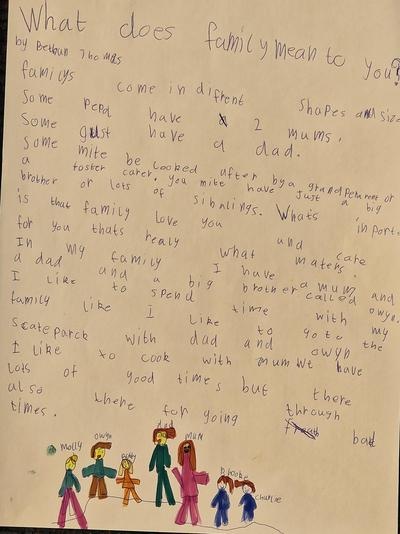 What does family mean to you?
by Bethan Thomas
familys come in difrent shapes and size
Some pepol have 2 mums.
Some gust have a dad.
some mite be looked after by a grandperent or
a foster carer. you mite have just a big
brother or lots of sibnlings. Whats inport
is that family love you and care
for you thats realy what maters.
In my family I have a mum and
a dad and a big brother called owyn.
I like to spend time with my
family like I like to go to the
scateparck with dad and owyn
I like to cook with mum We have
lots of good times but there
also there for going through bad
times.
Molly
owyn
dad
mum
Brooke
charlie